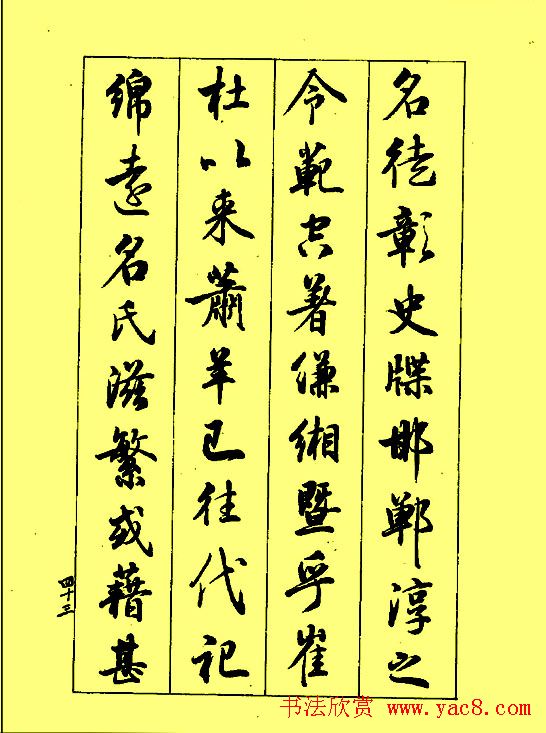 名徒彰史牒邯鄲淳之
令範空著縑緗暨乎崔
杜以来蕭羊已往代祀
綿遠名氏滋繁或藉甚
四十三
书法欣赏 www.yac8.com